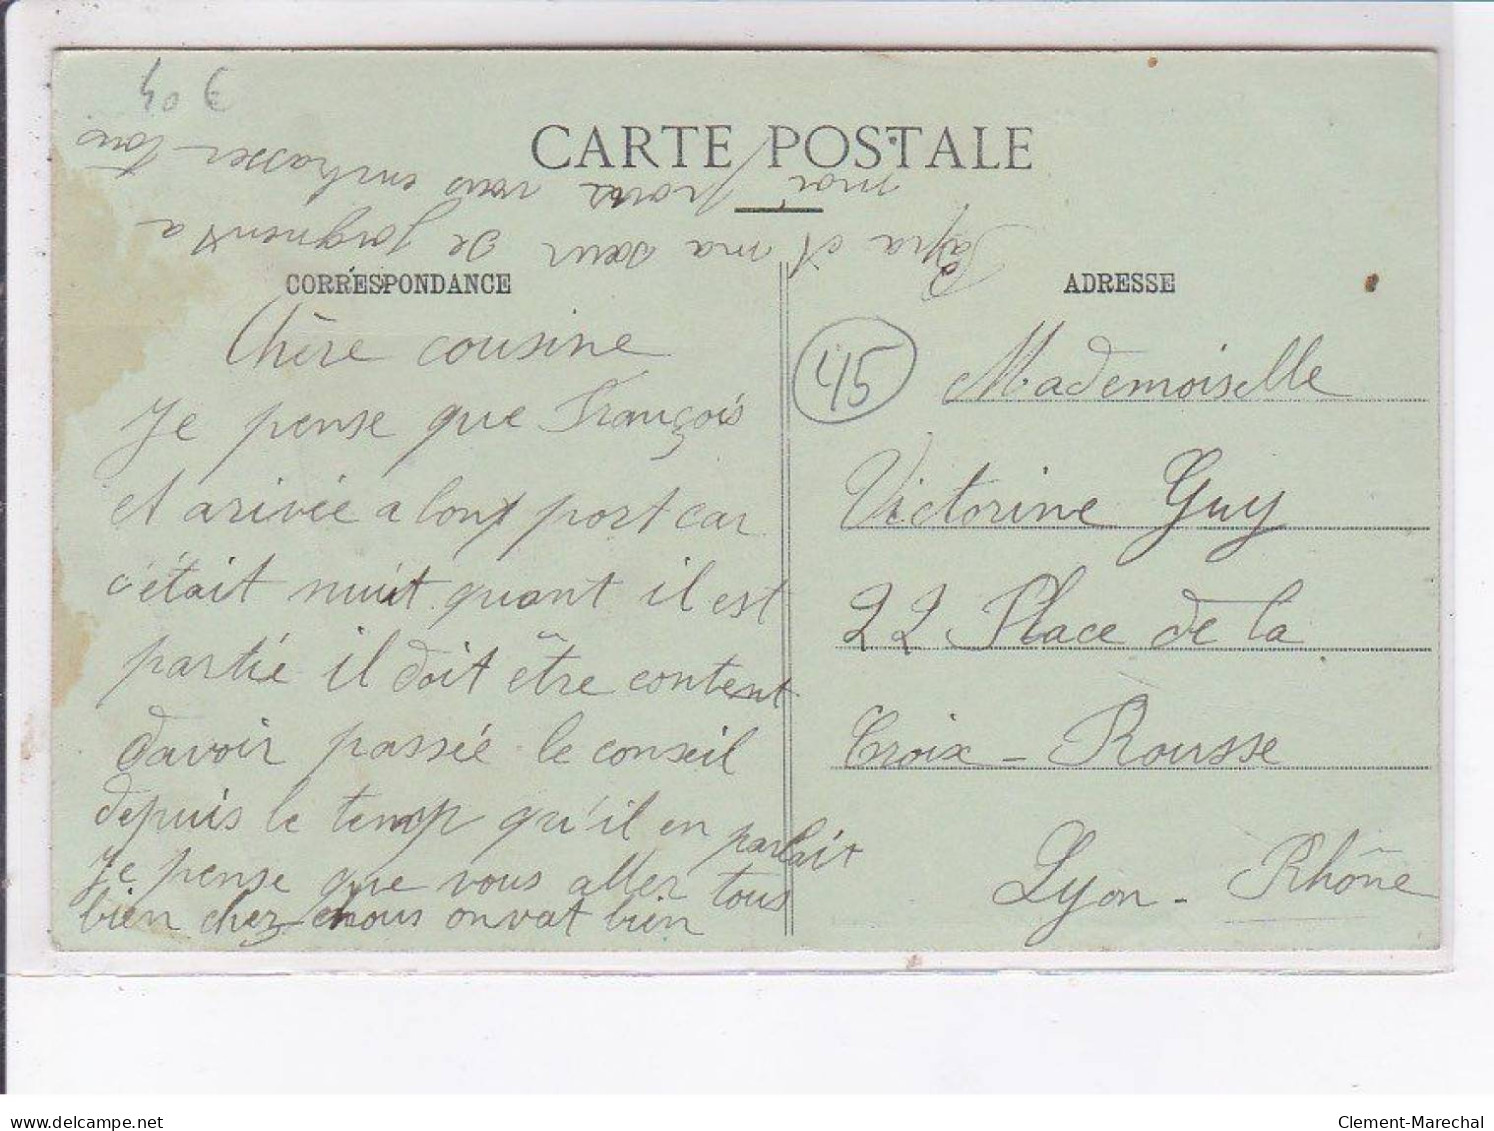 CARTE POSTALE
CORRESPONDANCE
ADRESSE
Chère cousine
Je pense que François
et arivée a bont port car
c'était nuit quant il est
partie il doit être content
davoir passée le conseil
depuis le temp qu'il en parlait
Je pense que vous aller tous
bien chez nous on vat bien
Papa et ma sœur se joignent a
moi pour vous embrasser tous
45
Mademoiselle
Victorine Guy
22 Place de la
Croix-Rousse
Lyon - Rhône
delcampe.net
Clement-Marechal